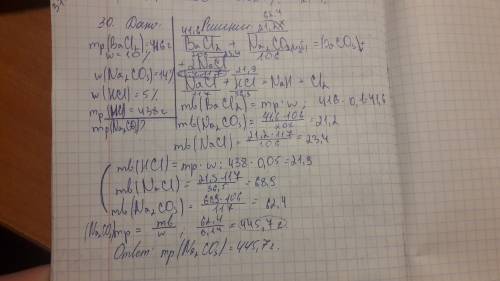 30. Дано:
mр(BaCl₂)=416г
w=10%
w(Na₂CO₃)=14%
w(HCl)=5%
mр(HCl)=438г
mр(Na₂CO₃)?
Решение
41,6 62,4
BaCl₂ + Na₂CO₃ = BaCO₃↓
106
+ 2NaCl 23,4
21,9
NaCl + HCl = NaH + Cl₂
117 36,5
mв(BaCl₂)= mр·w; 416·0,1=41,6
mв(Na₂CO₃)= 41,6·106/208 =21,2
mв(NaCl)= 21,2·117/106 =23,4
mв(HCl)= mр·w; 438·0,05=21,9
mв(NaCl)= 21,9·117/36,5 =68,9
mв(Na₂CO₃)= 68,9·106/117 =62,4
(Na₂CO₃)mр= mв/w; 62,4/0,14 =445,7г.
Ответ: mр(Na₂CO₃)=445,7г.